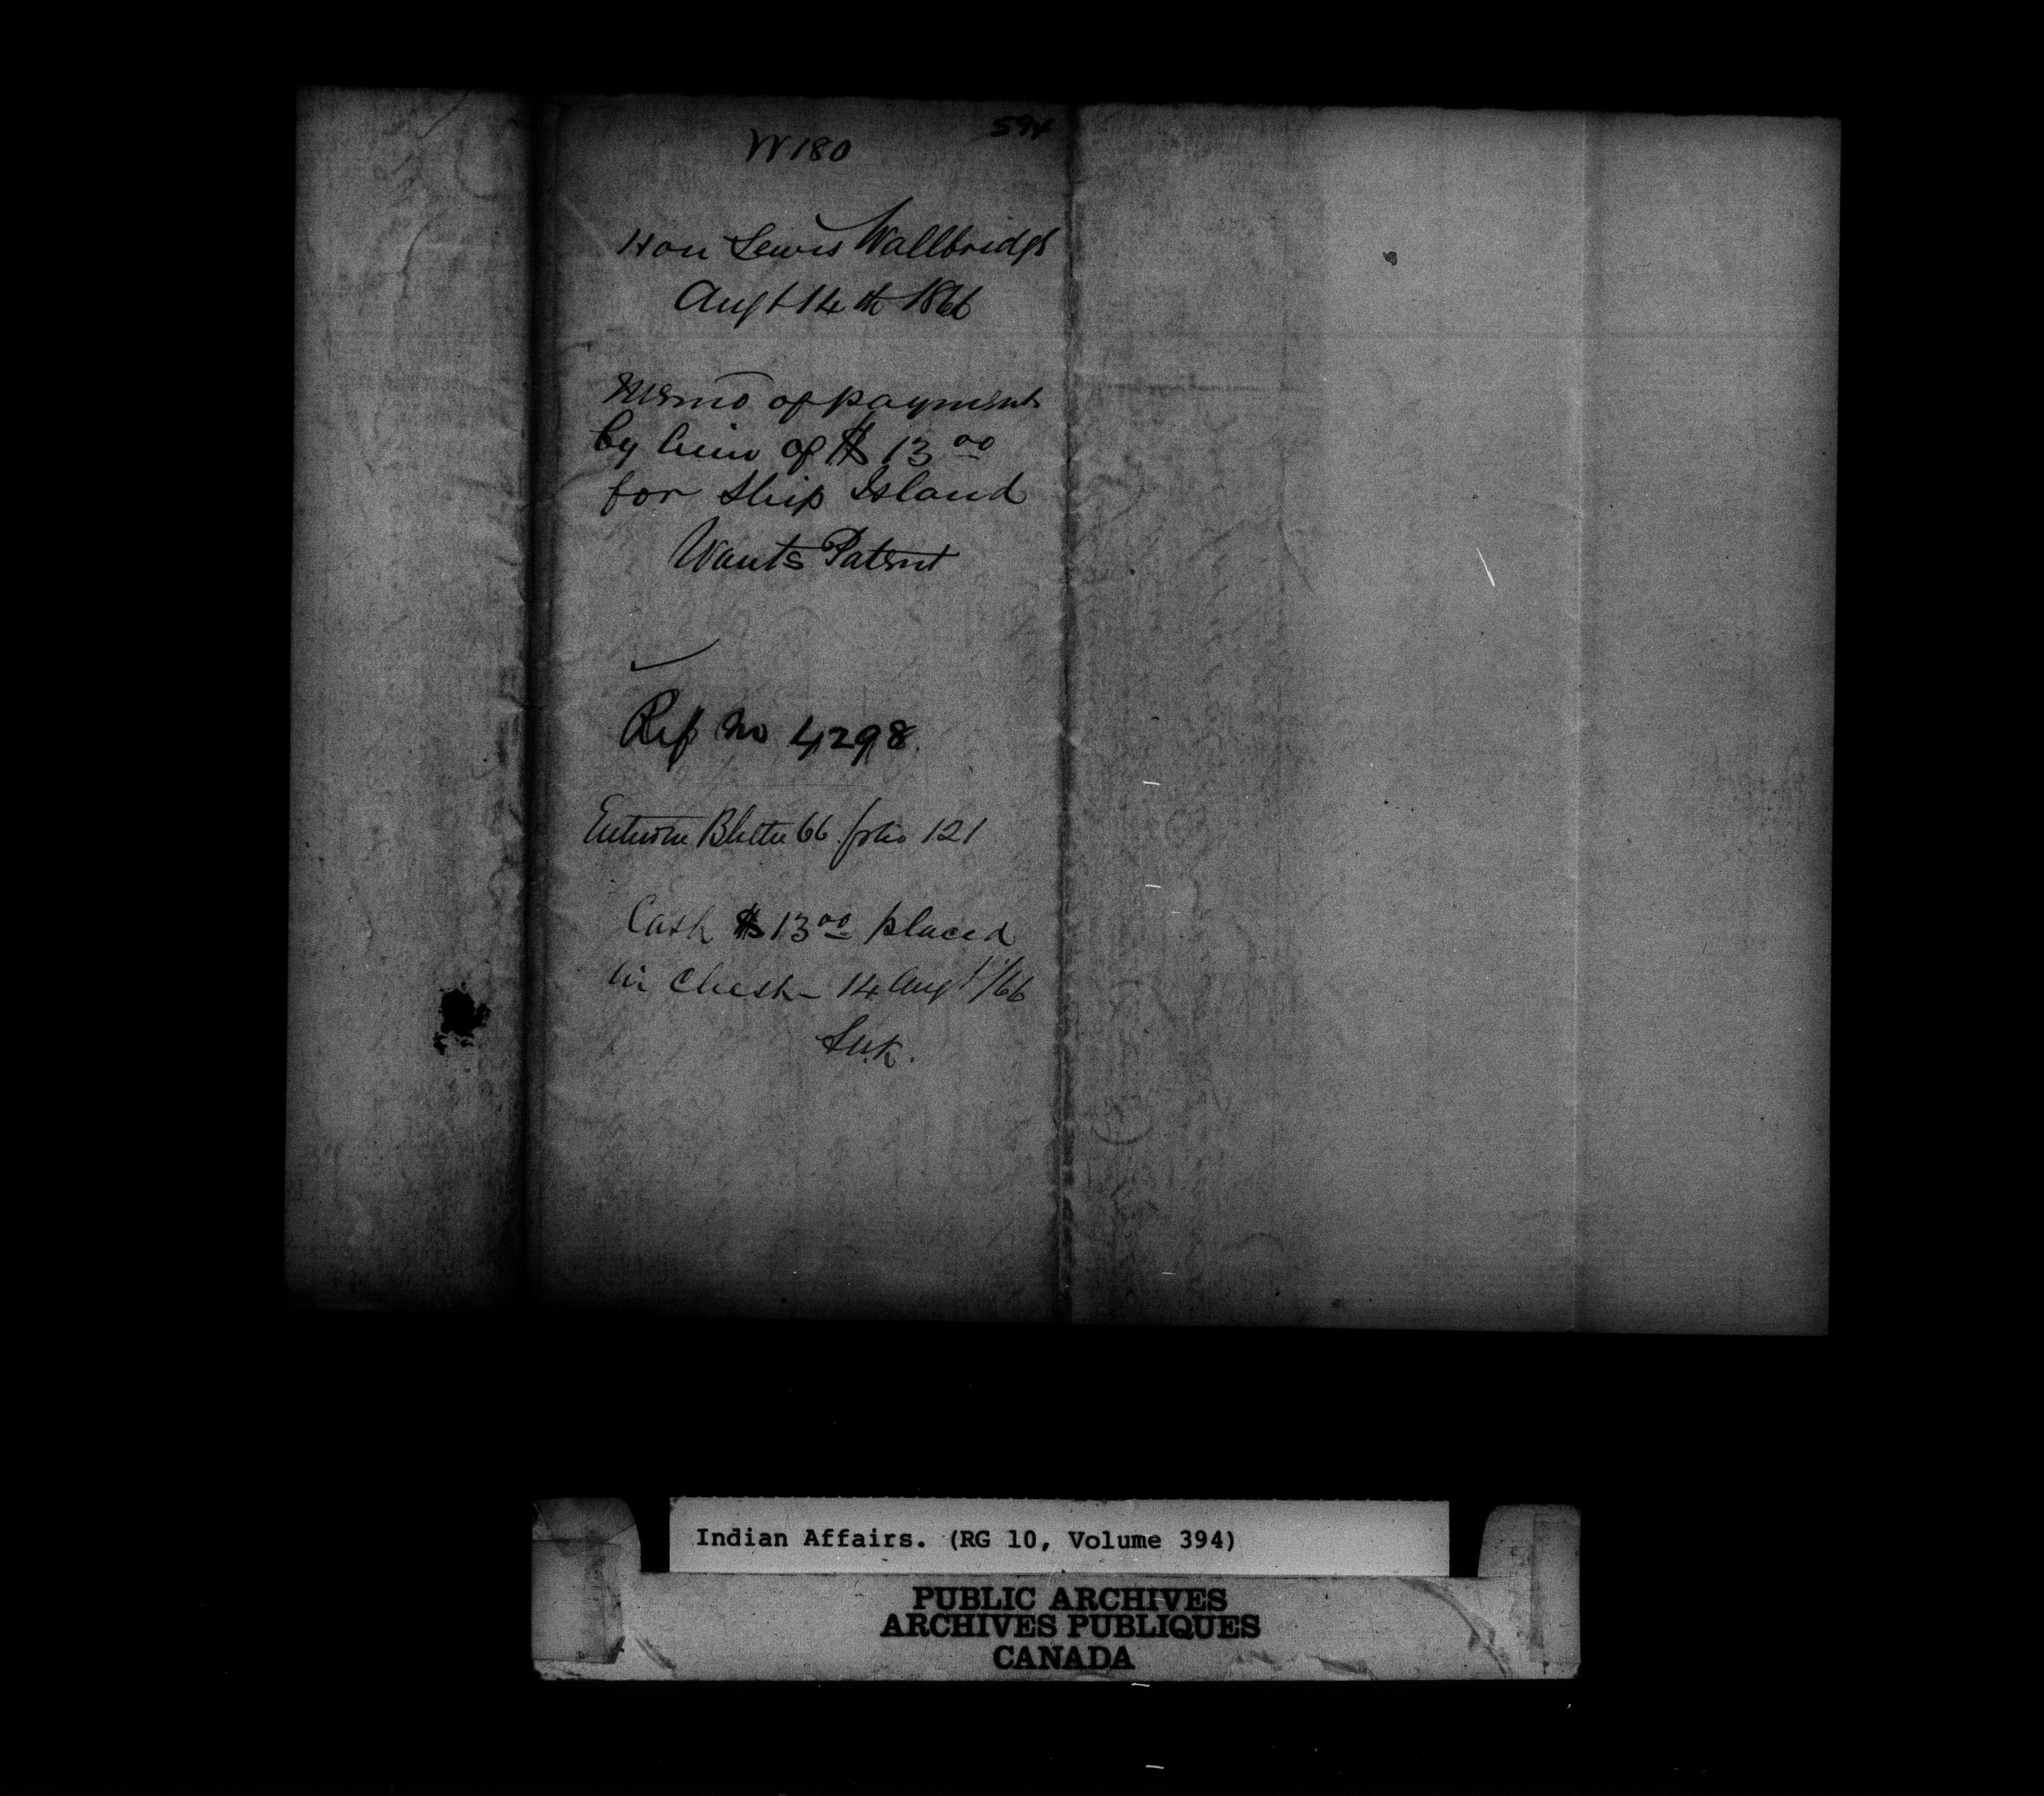 594
W180
Hon Lewis Wallbridge
Augt 14th 1866
Memo of payment
by him of $13 00
for Ship Island
Wants Patent
Ref No 4298
66 folio 121
Cash $13 00 placed
in Chest - 14 Augt /66
Indian Affairs. (RG 10, Volume 394)
PUBLIC ARCHIVES
ARCHIVES PUBLIQUES
CANADA